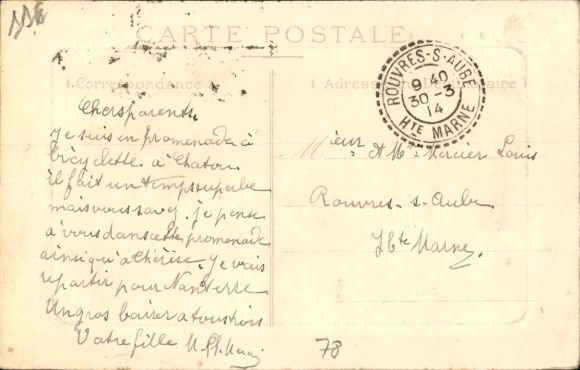 CARTE POSTALE
Correspondance
Adresse du Destinataire
ROUVRES-S-AUBE
9 40
30-3
14
HTE MARNE
Chers parents,
Je suis en promenade à
bicyclette à Chatou
il fait un temps superbe
mais vous savez, je pense
à vous dans cette promenade
ainsi qu'à Thérèse. Je vais
repartir pour Nanterre
Un gros baiser a tous trois
Votre fille
Mieur et Me Mercier Louis
Rouvres-s-Aube
Hte Marne
78